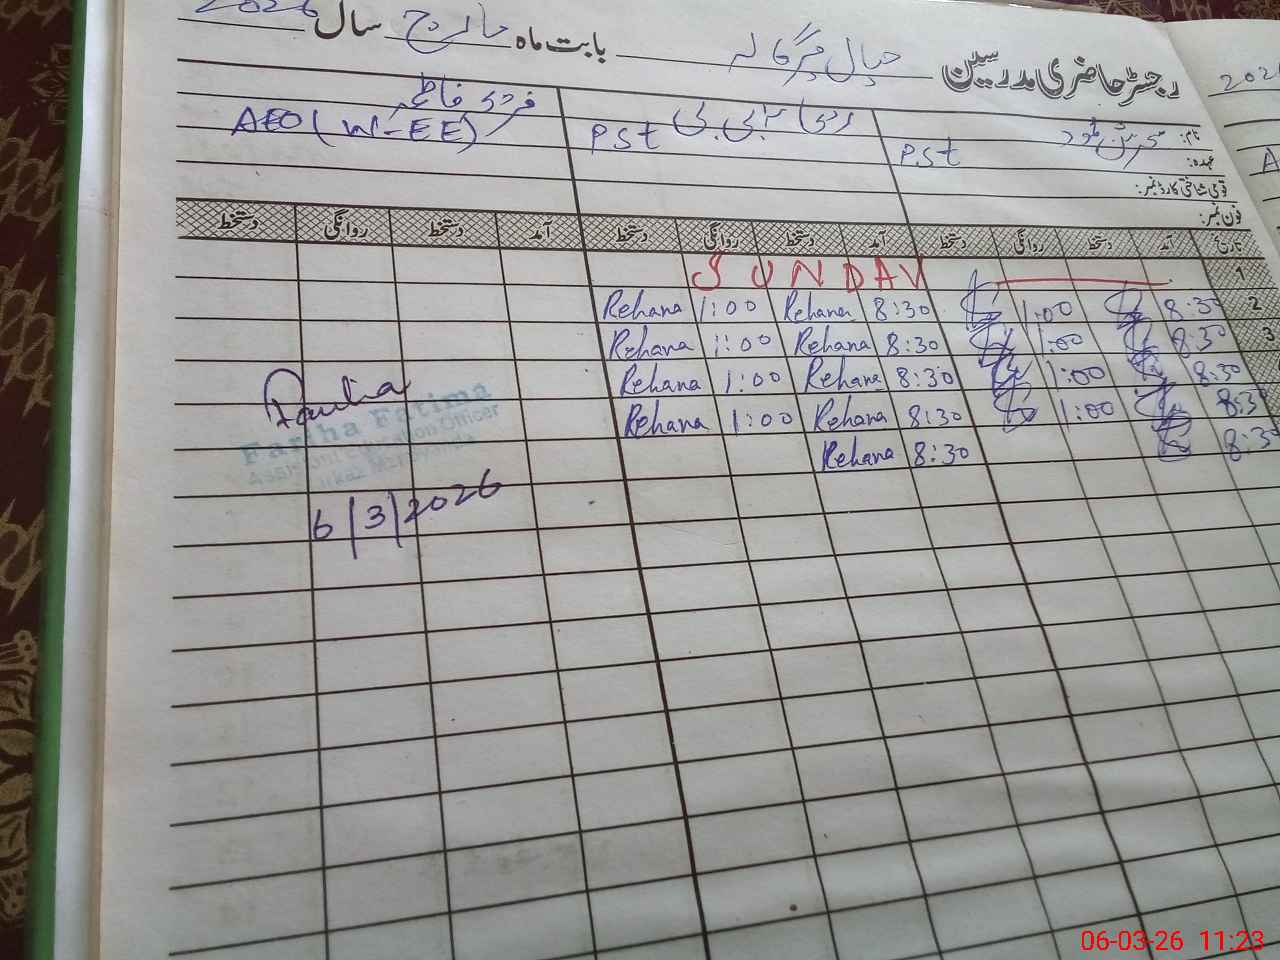 رجسٹر حاضری مدرسین جپال چڑگالہ بابت ماہ مارچ سال 2026
2026
نام: ریحانہ بی بی فریحہ فاطمہ
عہدہ: PSt PSt AEO (W-EE)
قومی شناختی کارڈ نمبر:
فون نمبر:
تاریخ آمد دستخط روانگی دستخط آمد دستخط روانگی دستخط آمد دستخط روانگی دستخط
1 SUNDAY
2 8:30 1:00 8:30 Rehana 1:00 Rehana
3 8:30 1:00 8:30 Rehana 1:00 Rehana
8:30 1:00 8:30 Rehana 1:00 Rehana
8:3 1:00 8:30 Rehana 1:00 Rehana
8:30 8:30 Rehana
Fariha Fatima
Assistant Education Officer
6/3/2026
06-03-26 11:23